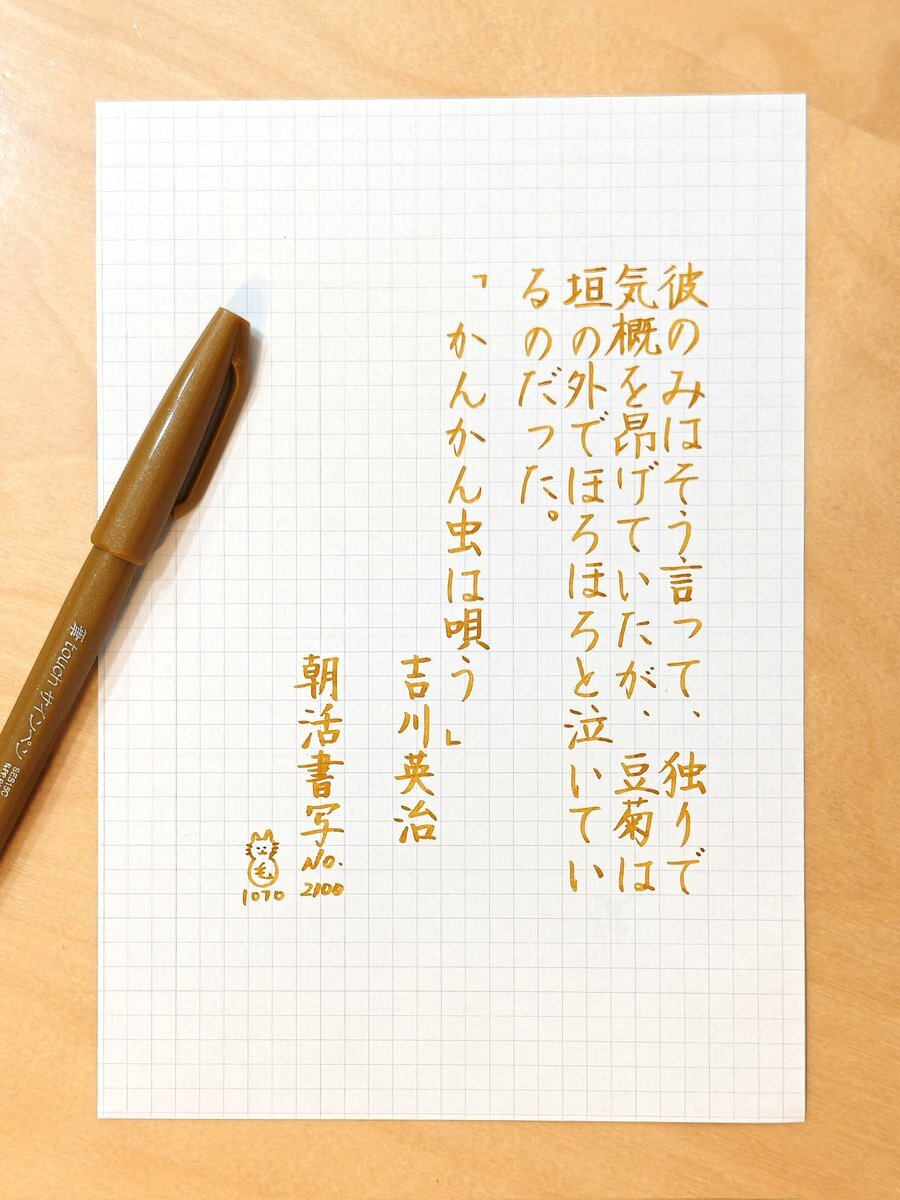 彼のみはそう言って、独りで
気概を昂げていたが、豆菊は
垣の外でほろほろと泣いてい
るのだった。
「かんかん虫は唄う」
吉川英治
朝活書写No.2100
毛
1070
筆touchサインペン
SES15C